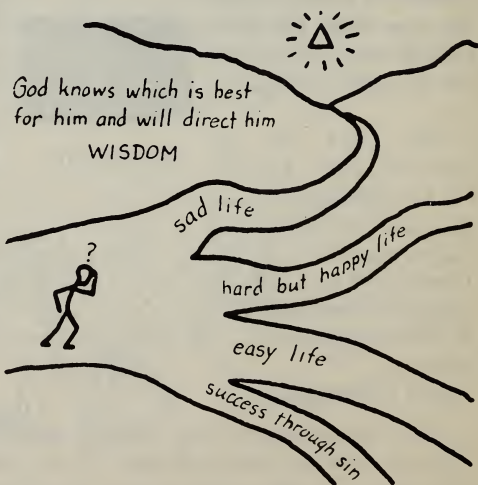 God knows which is best
for him and will direct him
WISDOM
sad life
?
hard but happy life
easy life
success through sin